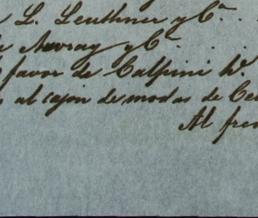 L. Leuthner y Cª. .
Auvray y Cª . . .
favor de Calpini hº
al cajon de modas de Ce
Al fren